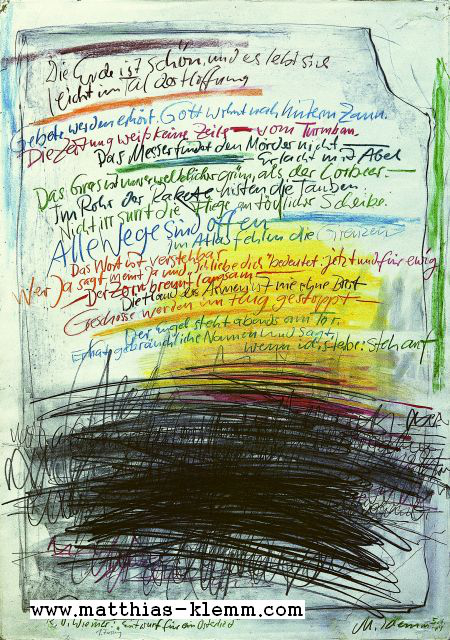 Die Erde ist schön, und es lebt sich
leicht im Tal der Hoffnung
Gebete werden erhört. Gott wohnt nah hinterm Zaun.
Die Zeitung weiß keine Zeile – vom Turmbau.
Das Messer findet den Mörder nicht.
Er lacht mit Abel
Das Gras ist unverwelklicher grün, als der Lorbeer –
Im Rohr der Rakete nisten die Tauben.
Nicht irr surrt die Fliege an tödlicher Scheibe.
Alle Wege sind offen
Im Atlas fehlen die Grenzen
Das Wort ist verstehbar –
Wer Ja sagt, meint Ja und ich liebe dich bedeutet: jetzt und für ewig
– Der Zorn brennt langsam –
Die Hand des Armen ist nie ohne Brot
Geschosse werden im Flug gestoppt –
Der Engel steht abends am Tor.
Er hat gebräuchliche Namen und sagt,
wenn ich sterbe: Steh auf
www.matthias-klemm.com
R. O. Wiemer: Entwurf für ein Osterlied
M. Klemm